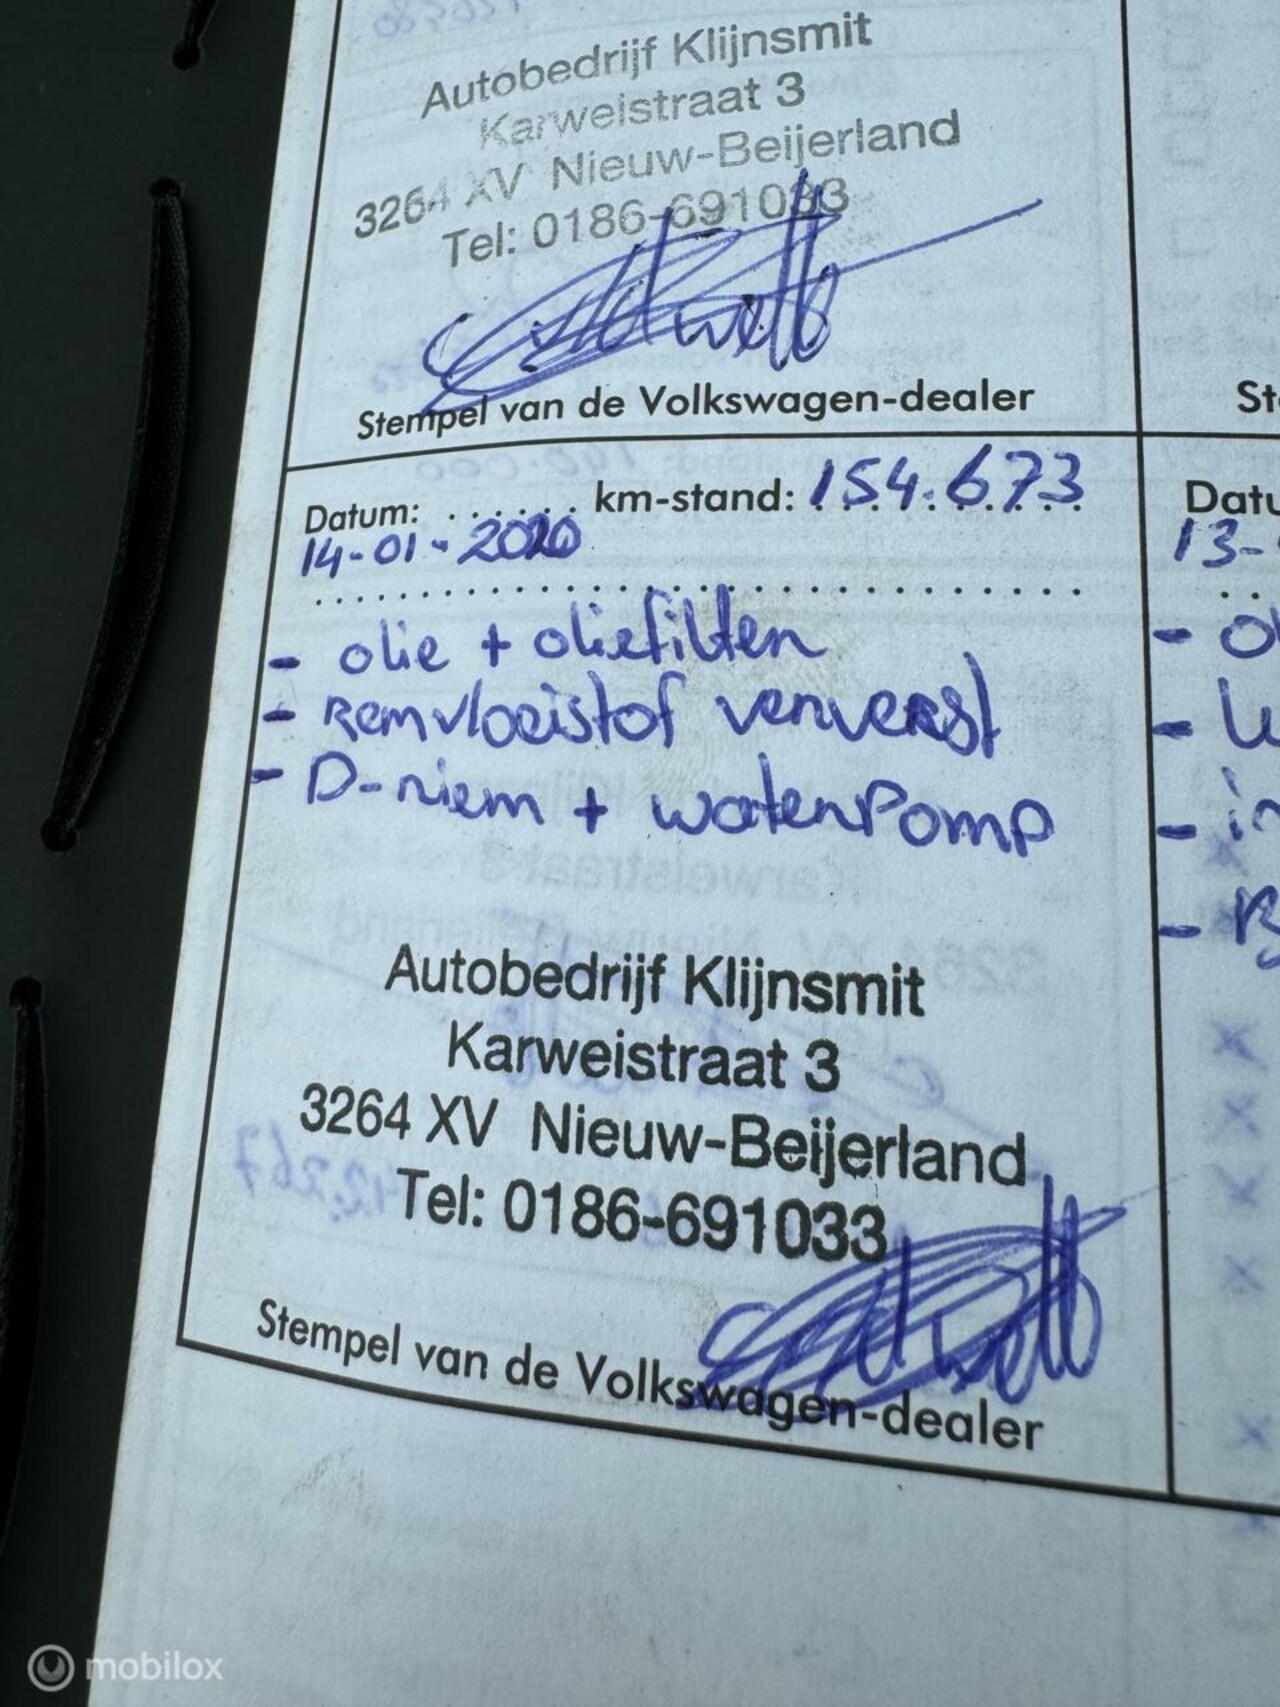 Autobedrijf Klijnsmit
Karweistraat 3
3264 XV Nieuw-Beijerland
Tel: 0186-691033
Stempel van de Volkswagen-dealer
Datum: ...... km-stand: 154.673
14-01-2020
- olie + oliefilter
- Remvloeistof ververst
- D-riem + waterpomp
Autobedrijf Klijnsmit
Karweistraat 3
3264 XV Nieuw-Beijerland
Tel: 0186-691033
Stempel van de Volkswagen-dealer
St
Datu
13-
mobilox